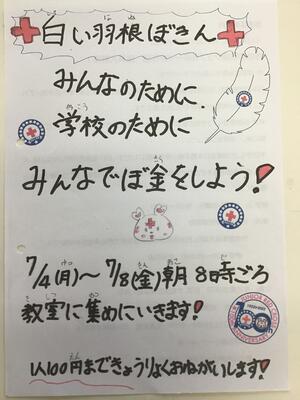 白い羽根ぼきん
みんなのために
学校のために
みんなでぼ金をしよう!
7/4(月)〜7/8(金)朝8時ごろ
教室に集めにいきます!
1人100円まできょうりょくおねがいします!